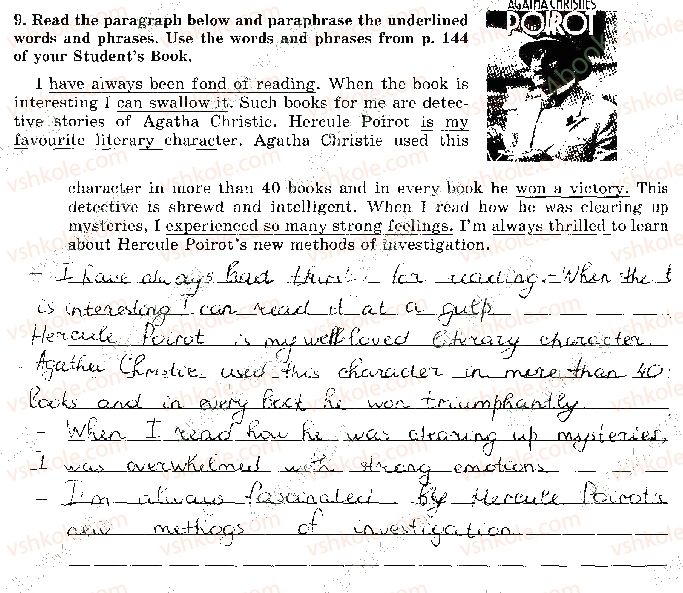 9. Read the paragraph below and paraphrase the underlined
words and phrases. Use the words and phrases from p. 144
of your Student's Book.
AGATHA CHRISTIE'S
POIROT
I have always been fond of reading. When the book is
interesting I can swallow it. Such books for me are detec-
tive stories of Agatha Christie. Hercule Poirot is my
favourite literary character. Agatha Christie used this
character in more than 40 books and in every book he won a victory. This
detective is shrewd and intelligent. When I read how he was clearing up
mysteries, I experienced so many strong feelings. I'm always thrilled to learn
about Hercule Poirot's new methods of investigation.
- I have always had thirst for reading. - When the
is interesting I can read it at a gulp
Hercule Poirot is my well loved literary character.
Agatha Christie used this character in more than 40
books and in every book he won triumphantly.
- When I read how he was clearing up mysteries,
I was overwhelmed with strong emotions
- I'm always fascinated by Hercule Poirot's
new methogs of investigation